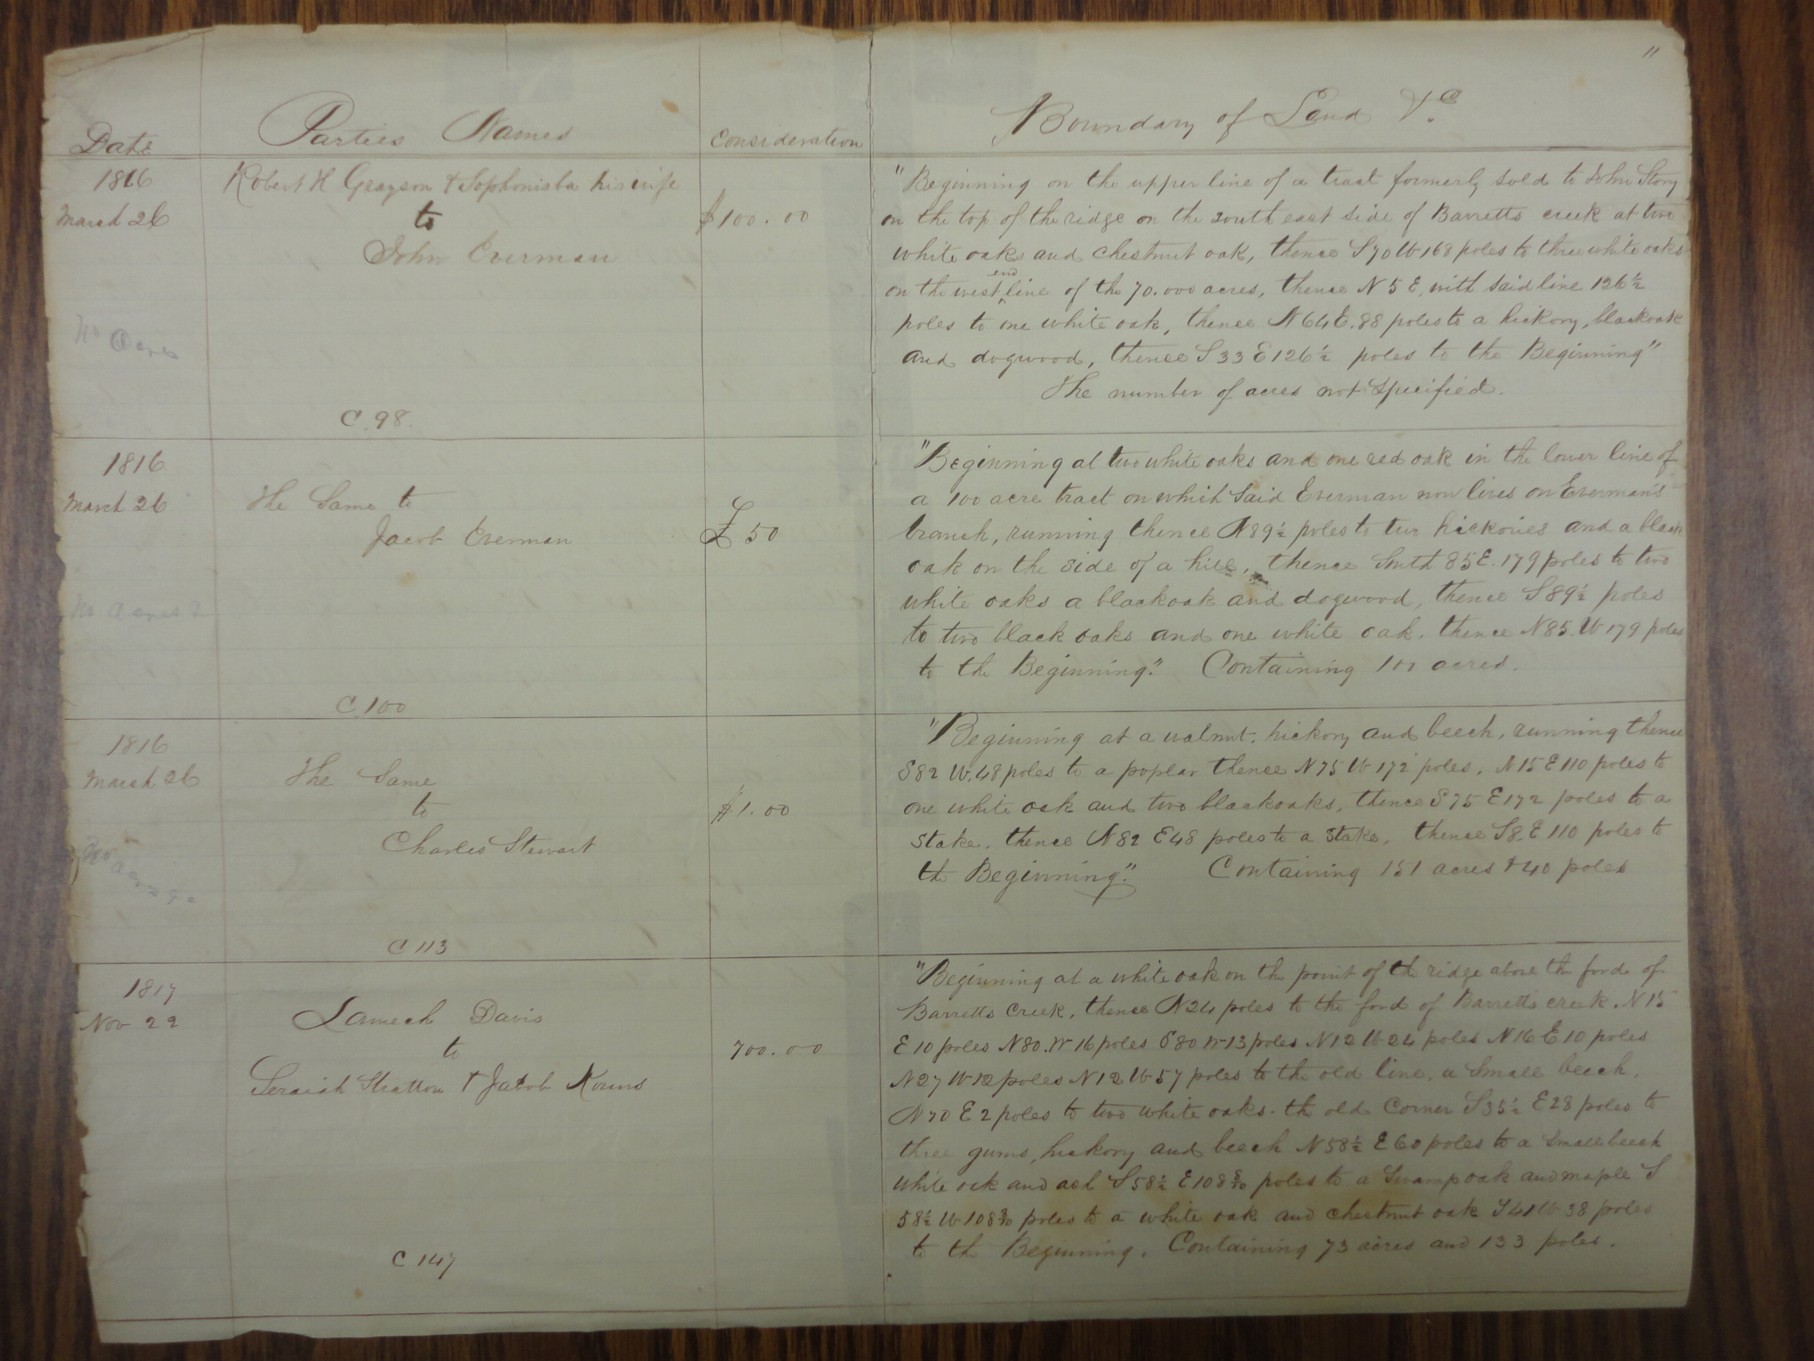 11
Date
Parties Names
Consideration
Boundary of Land &c.
1816
March 26
Robert H Grayson & Sophonisba his wife
to
John Everman
No Acres
C. 98.
$100.00
"Beginning on the upper line of a tract formerly sold to John Story
on the top of the ridge on the south east side of Barretts creek at two
white oaks and chestnut oak, thence S 70 W 168 poles to three white oaks
on the west end line of the 70.000 acres, thence N 5 E. with said line 126 ½
poles to one white oak, thence N 64 E. 88 poles to a hickory, blackoak
and dogwood, thence S 33 E 126 ½ poles to the Beginning"
The number of acres not specified.
1816
March 26
The Same to
Jacob Everman
No acres
C. 100
£ 50
"Beginning at two white oaks and one red oak in the lower line of
a 100 acre tract on which said Everman now lives on Everman's
branch, running thence N 89 ½ poles to two hickories and a black
oak on the side of a hill, thence South 85 E. 179 poles to two
white oaks a blackoak and dogwood, thence S 89 ½ poles
to two black oaks and one white oak, thence N 85. W 179 poles
to the Beginning." Containing 100 acres.
1816
March 26
The Same
to
Charles Stewart
No
C 113
$1.00
"Beginning at a walnut, hickory and beech, running thence
S 82 W. 48 poles to a poplar thence N 75 W 172 poles, N 15 E 110 poles to
one white oak and two blackoaks, thence S 75 E 172 poles to a
stake, thence N 82 E 48 poles to a stake, thence S 8. E 110 poles to
th Beginning." Containing 151 acres & 40 poles
1817
Nov 22
Lamech Davis
to
Seraiah Stratton & Jacob Kouns
C 147
700.00
"Beginning at a white oak on the point of th ridge above th ford of
Barretts Creek, thence N 24 poles to the ford of Barretts creek. N 15
E 10 poles N 80. W 16 poles S 80 W 13 poles N 12 W 24 poles N 16 E 10 poles
N 27 W 12 poles N 12 W 57 poles to the old line, a small beech,
N 70 E 2 poles to two white oaks - th old corner S 35 ½ E 28 poles to
three gums, hickory and beech N 58 ½ E 60 poles to a small beech
white oak and ash S 58 ½ E 108 poles to a Swamp oak and maple S
58 ½ W 108 poles to a white oak and chestnut oak S 41 W 38 poles
to th Beginning. Containing 73 acres and 133 poles.